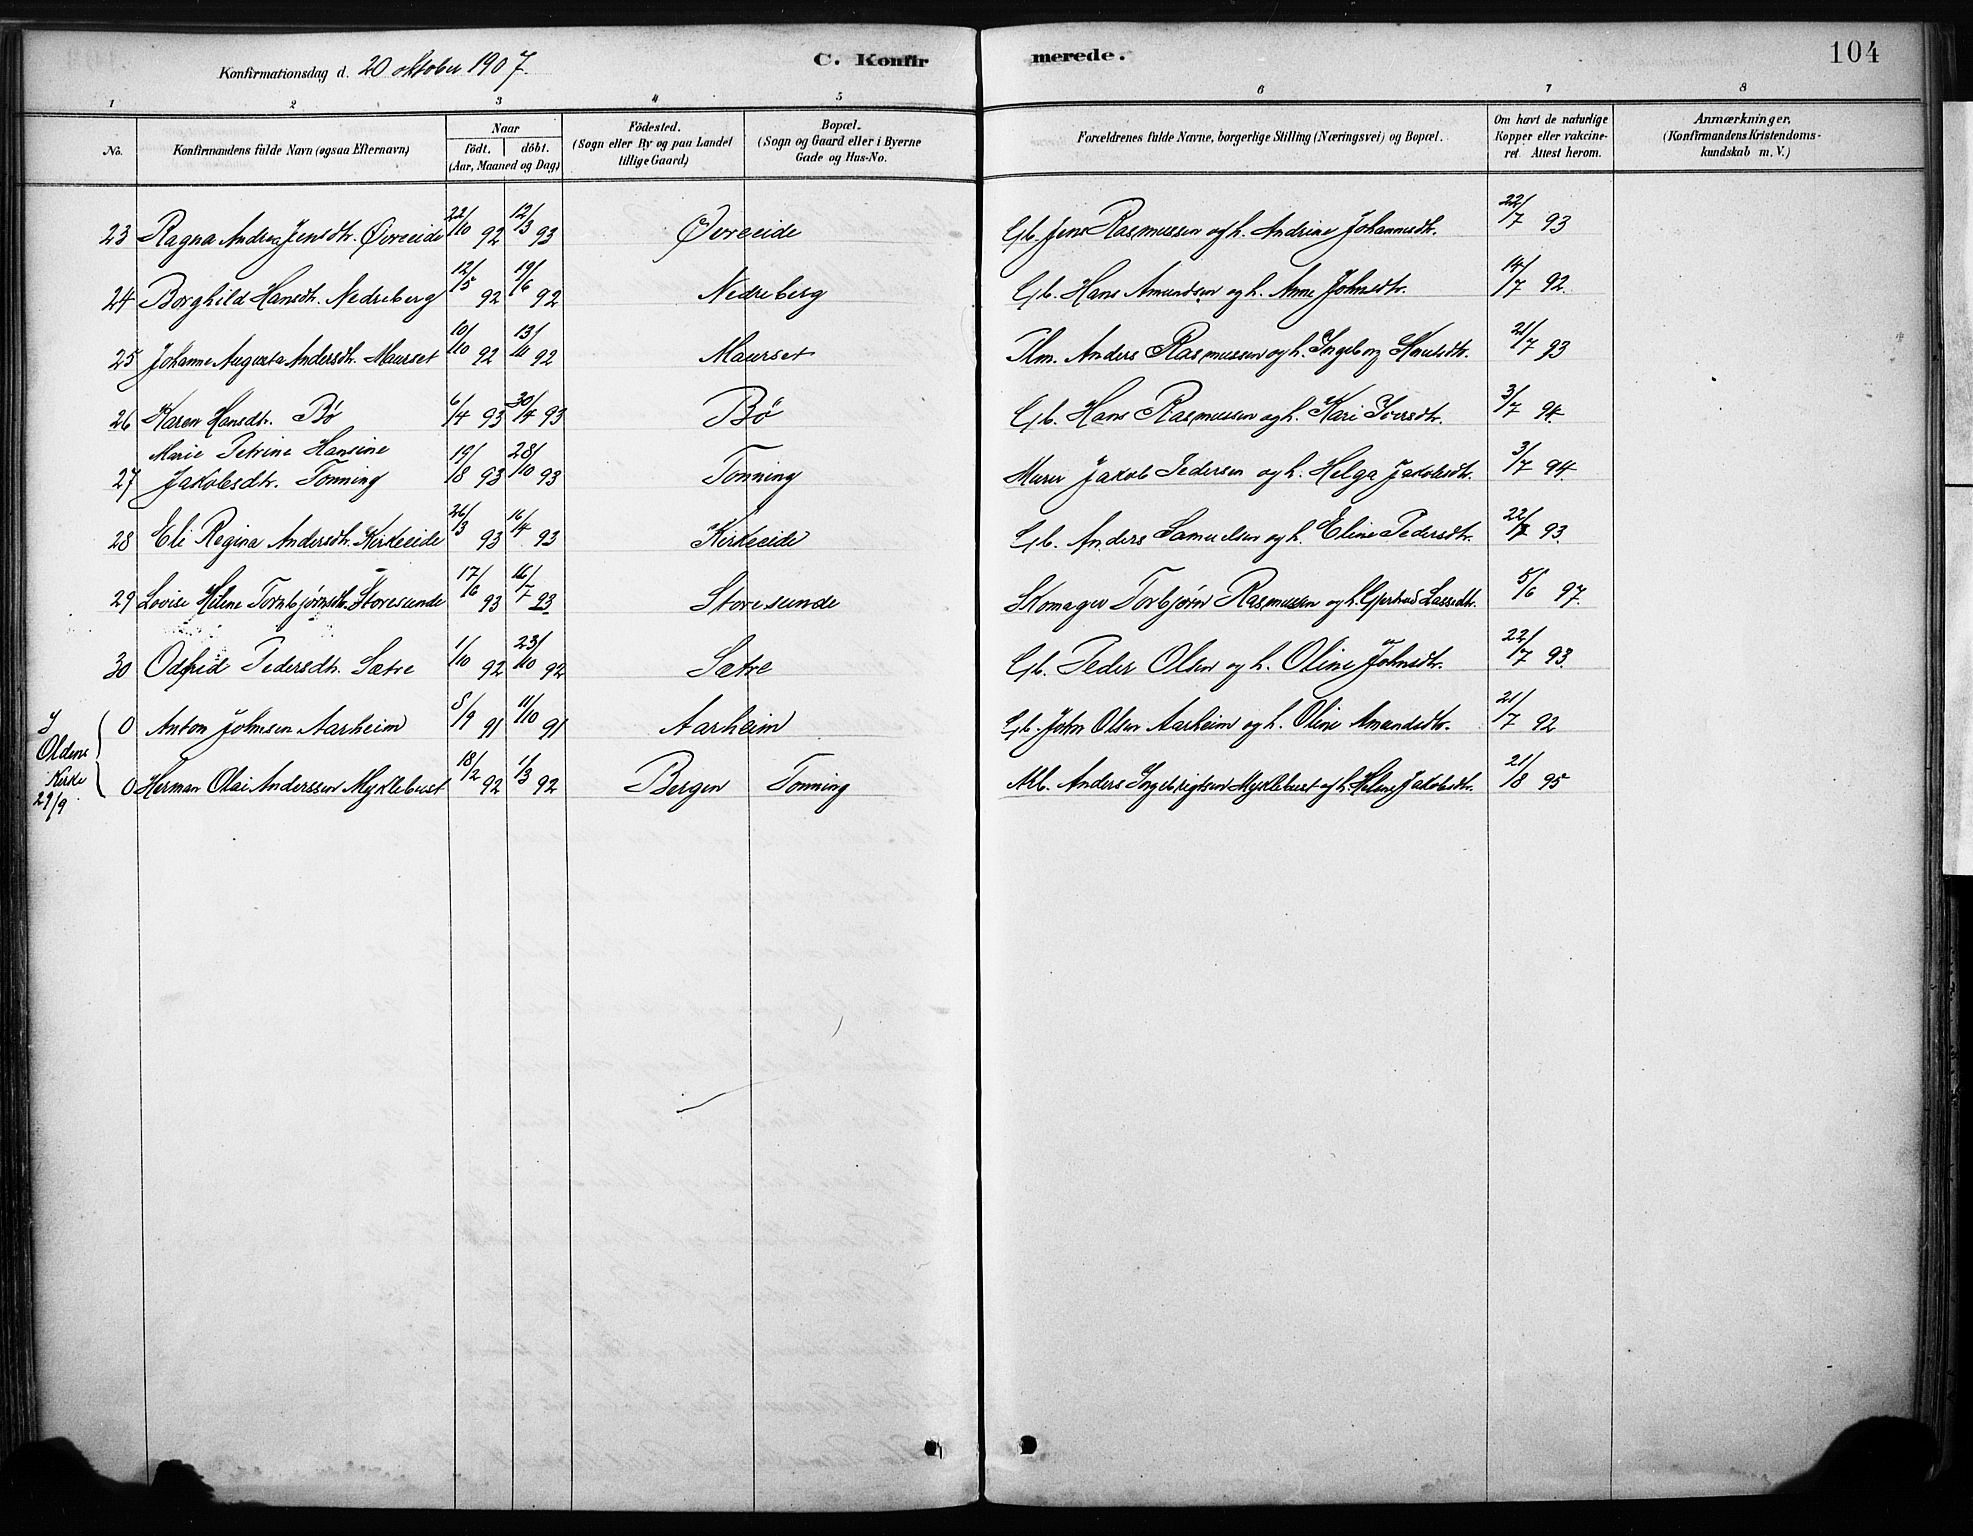 Konfirmationsdag d. 20 oktober 1907. C. Konfirmerede. 104
1 2 3 4 5 6 7 8
No. Konfirmandens fulde Navn (ogsaa Efternavn) Naar födt. döbt. (Aar, Maaned og Dag) Födested. (Sogn eller By og paa Landet tillige Gaard) Bopæl. (Sogn og Gaard eller i Byerne Gade og Hus-No. Forældrenes fulde Navne, borgerlige Stilling (Næringsvei) og Bopæl. Om havt de naturlige Kopper eller vakcineret Attest herom. Anmærkninger, (Konfirmandens Kristendomskundskab m. V.)
23 Ragna Andrea Jensdtr. Øvreeide 22/10 92 12/3 93 Øvreeide Gb. Jens Rasmussen og h. Andrine Johannesdtr. 22/7 93
24 Borghild Hansdtr. Nedreberg 12/5 92 19/6 92 Nedreberg Gb. Hans Amundsen og h. Anne Johnsdtr. 14/7 92.
25 Johanne Augusta Andersdtr. Maurset 10/10 92 13/11 92 Maurset Plm. Anders Rasmussen og h. Ingeborg Knudsdtr. 21/7 93
26 Karen Hansdtr. Bø 6/4 93 30/4 93 Bø Gb. Hans Rasmussen og h. Kari Iversdtr. 3/7 94.
27 Marie Petrine Hansine Jakobsdtr. Tonning 19/18 93 28/10 93 Tonning Murer Jakob Pedersen og h. Helga Jakobsdtr. 3/7 94.
28 Eli Regina Andersdtr. Kirkeeide 26/3 93 16/4 93 Kirkeeide Gb. Anders Samuelsen og h. Eline Pedersdtr. 22/7 93.
29 Lovise Helene Torbjørnsdtr. Storesunde 17/6 93 16/7 93 Storesunde Skomager Torbjørn Rasmussen og h. Gjertrud Lassedtr. 5/6 97.
30 Odfrid Pedersdtr. Sætre 1/10 92 23/10 92 Sætre Gb. Peder Olsen og h. Oline Johnsdtr. 22/7 93.
I Oldens Kirke 29/9
0 Anton Johnsen Aarheim 8/9 91 11/10 91 Aarheim Gb. John Olsen Aarheim og h. Oline Amundsdtr. 21/7 92
0 Herman Olai Anderssen Myklebust 18/2 92 1/3 92 Bergen Tonning Arb. Anders Ingebrigtsen Myklebust og h. Helene Jakobsdtr. 21/8 95